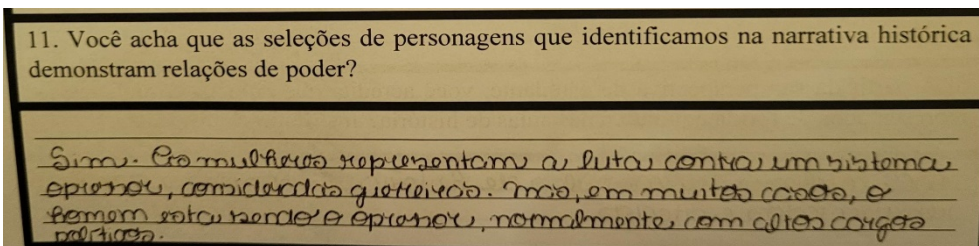 11. Você acha que as seleções de personagens que identificamos na narrativa histórica
demonstram relações de poder?
Sim. As mulheres representam a luta contra um sistema
opressor, consideradas guerreiras. Mas, em muitos casos, o
homem está sendo o opressor, normalmente, com altos cargos
políticos.